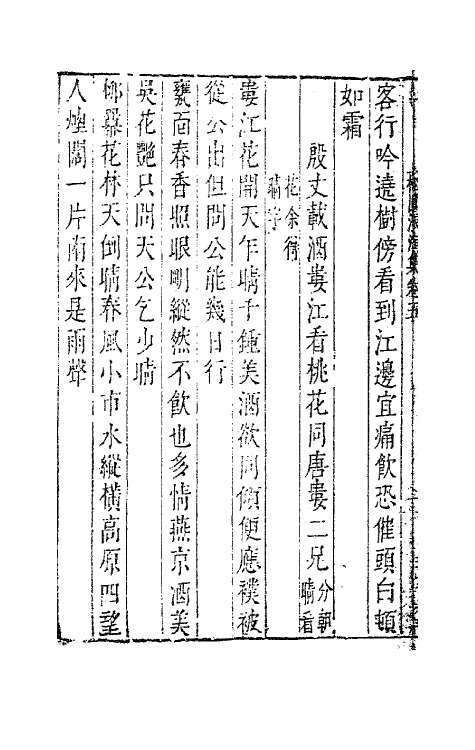 客行吟遶樹傍看到江邊宜痛飲恐催頭白頓
如霜
殷丈載酒婁江看桃花同唐婁二兄分朝晴看
花余得晴字
婁江花開天乍晴千鍾美酒欲同傾便應襆被
從公出但問公能幾日行
甕面春香照眼明縱然不飲也多情燕京酒美
吳花艷只問天公乞少晴
柳暴花林天倒晴春風小市水縱橫高原四望
人煙闊一片南來是雨聲